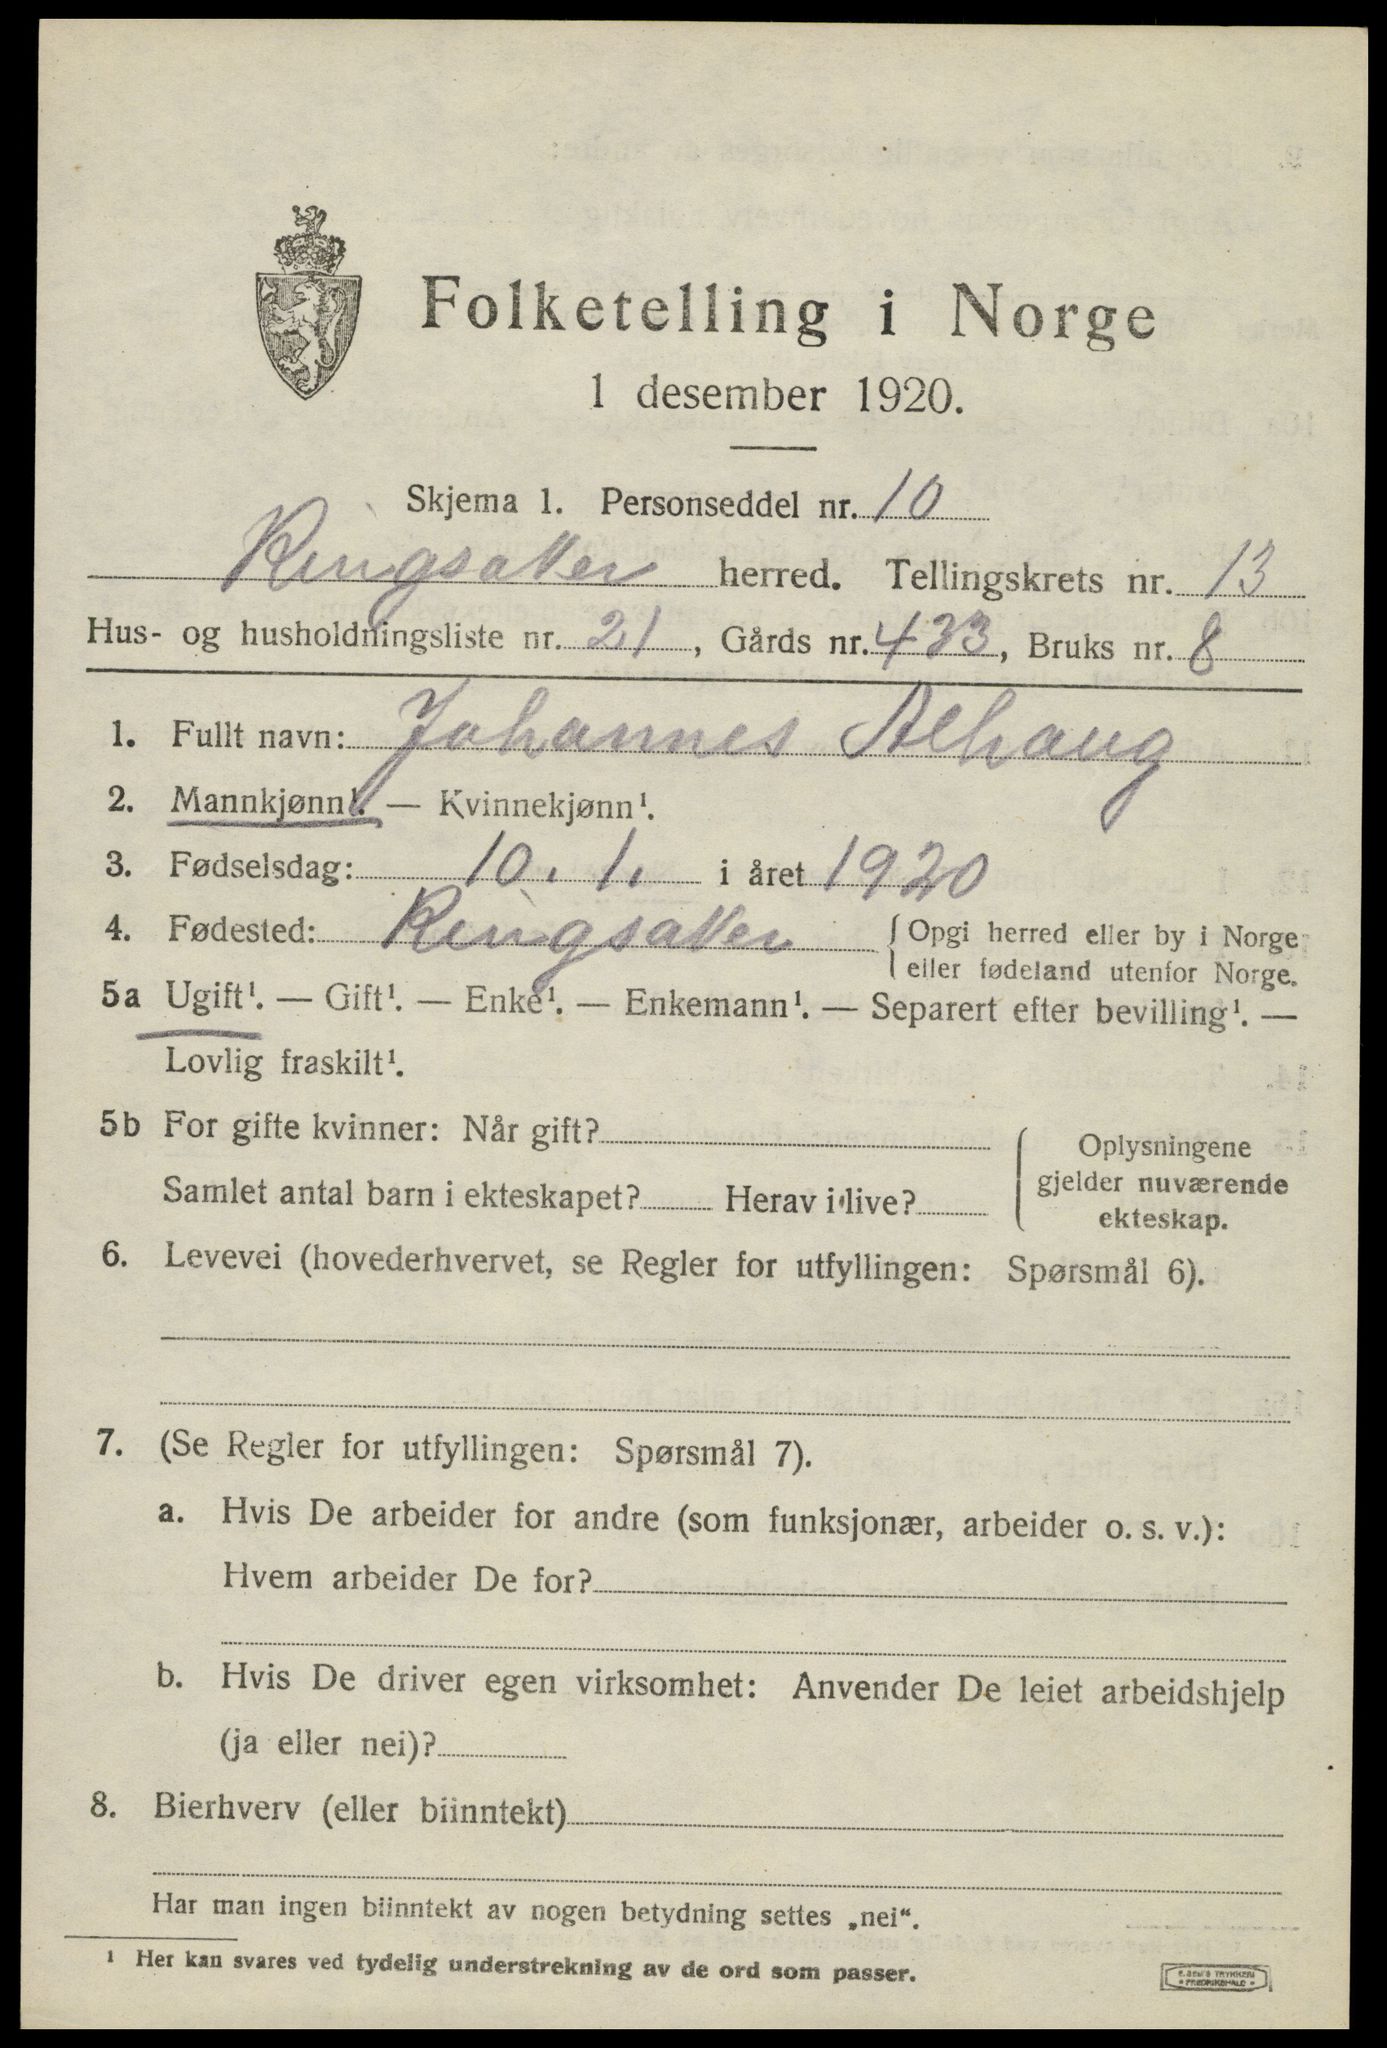 Folketelling i Norge
1 desember 1920.
Skjema 1. Personseddel nr. 10
Ringsaker herred. Tellingskrets nr. 13
Hus- og husholdningsliste nr. 21, Gårds nr. 433, Bruks nr. 8
1. Fullt navn: Johannes Alhaug
2. Mannkjønn¹. — Kvinnekjønn¹.
3. Fødselsdag: 10. 1. i året 1920
4. Fødested: Ringsaker {Opgi herred eller by i Norge
eller fødeland utenfor Norge.
5a Ugift¹. — Gift¹. — Enke¹. — Enkemann¹. — Separert efter bevilling¹. —
Lovlig fraskilt¹.
5b For gifte kvinner: Når gift?
Samlet antal barn i ekteskapet? Herav i live?
Oplysningene
gjelder nuværende
ekteskap.
6. Levevei (hovederhvervet, se Regler for utfyllingen: Spørsmål 6).
7. (Se Regler for utfyllingen: Spørsmål 7).
a. Hvis De arbeider for andre (som funksjonær, arbeider o. s. v.):
Hvem arbeider De for?
b. Hvis De driver egen virksomhet: Anvender De leiet arbeidshjelp
(ja eller nei)?
8. Bierhverv (eller biinntekt)
Har man ingen biinntekt av nogen betydning settes „nei“.
¹ Her kan svares ved tydelig understrekning av de ord som passer.
TRYKKERI
FREDRIKSHALD